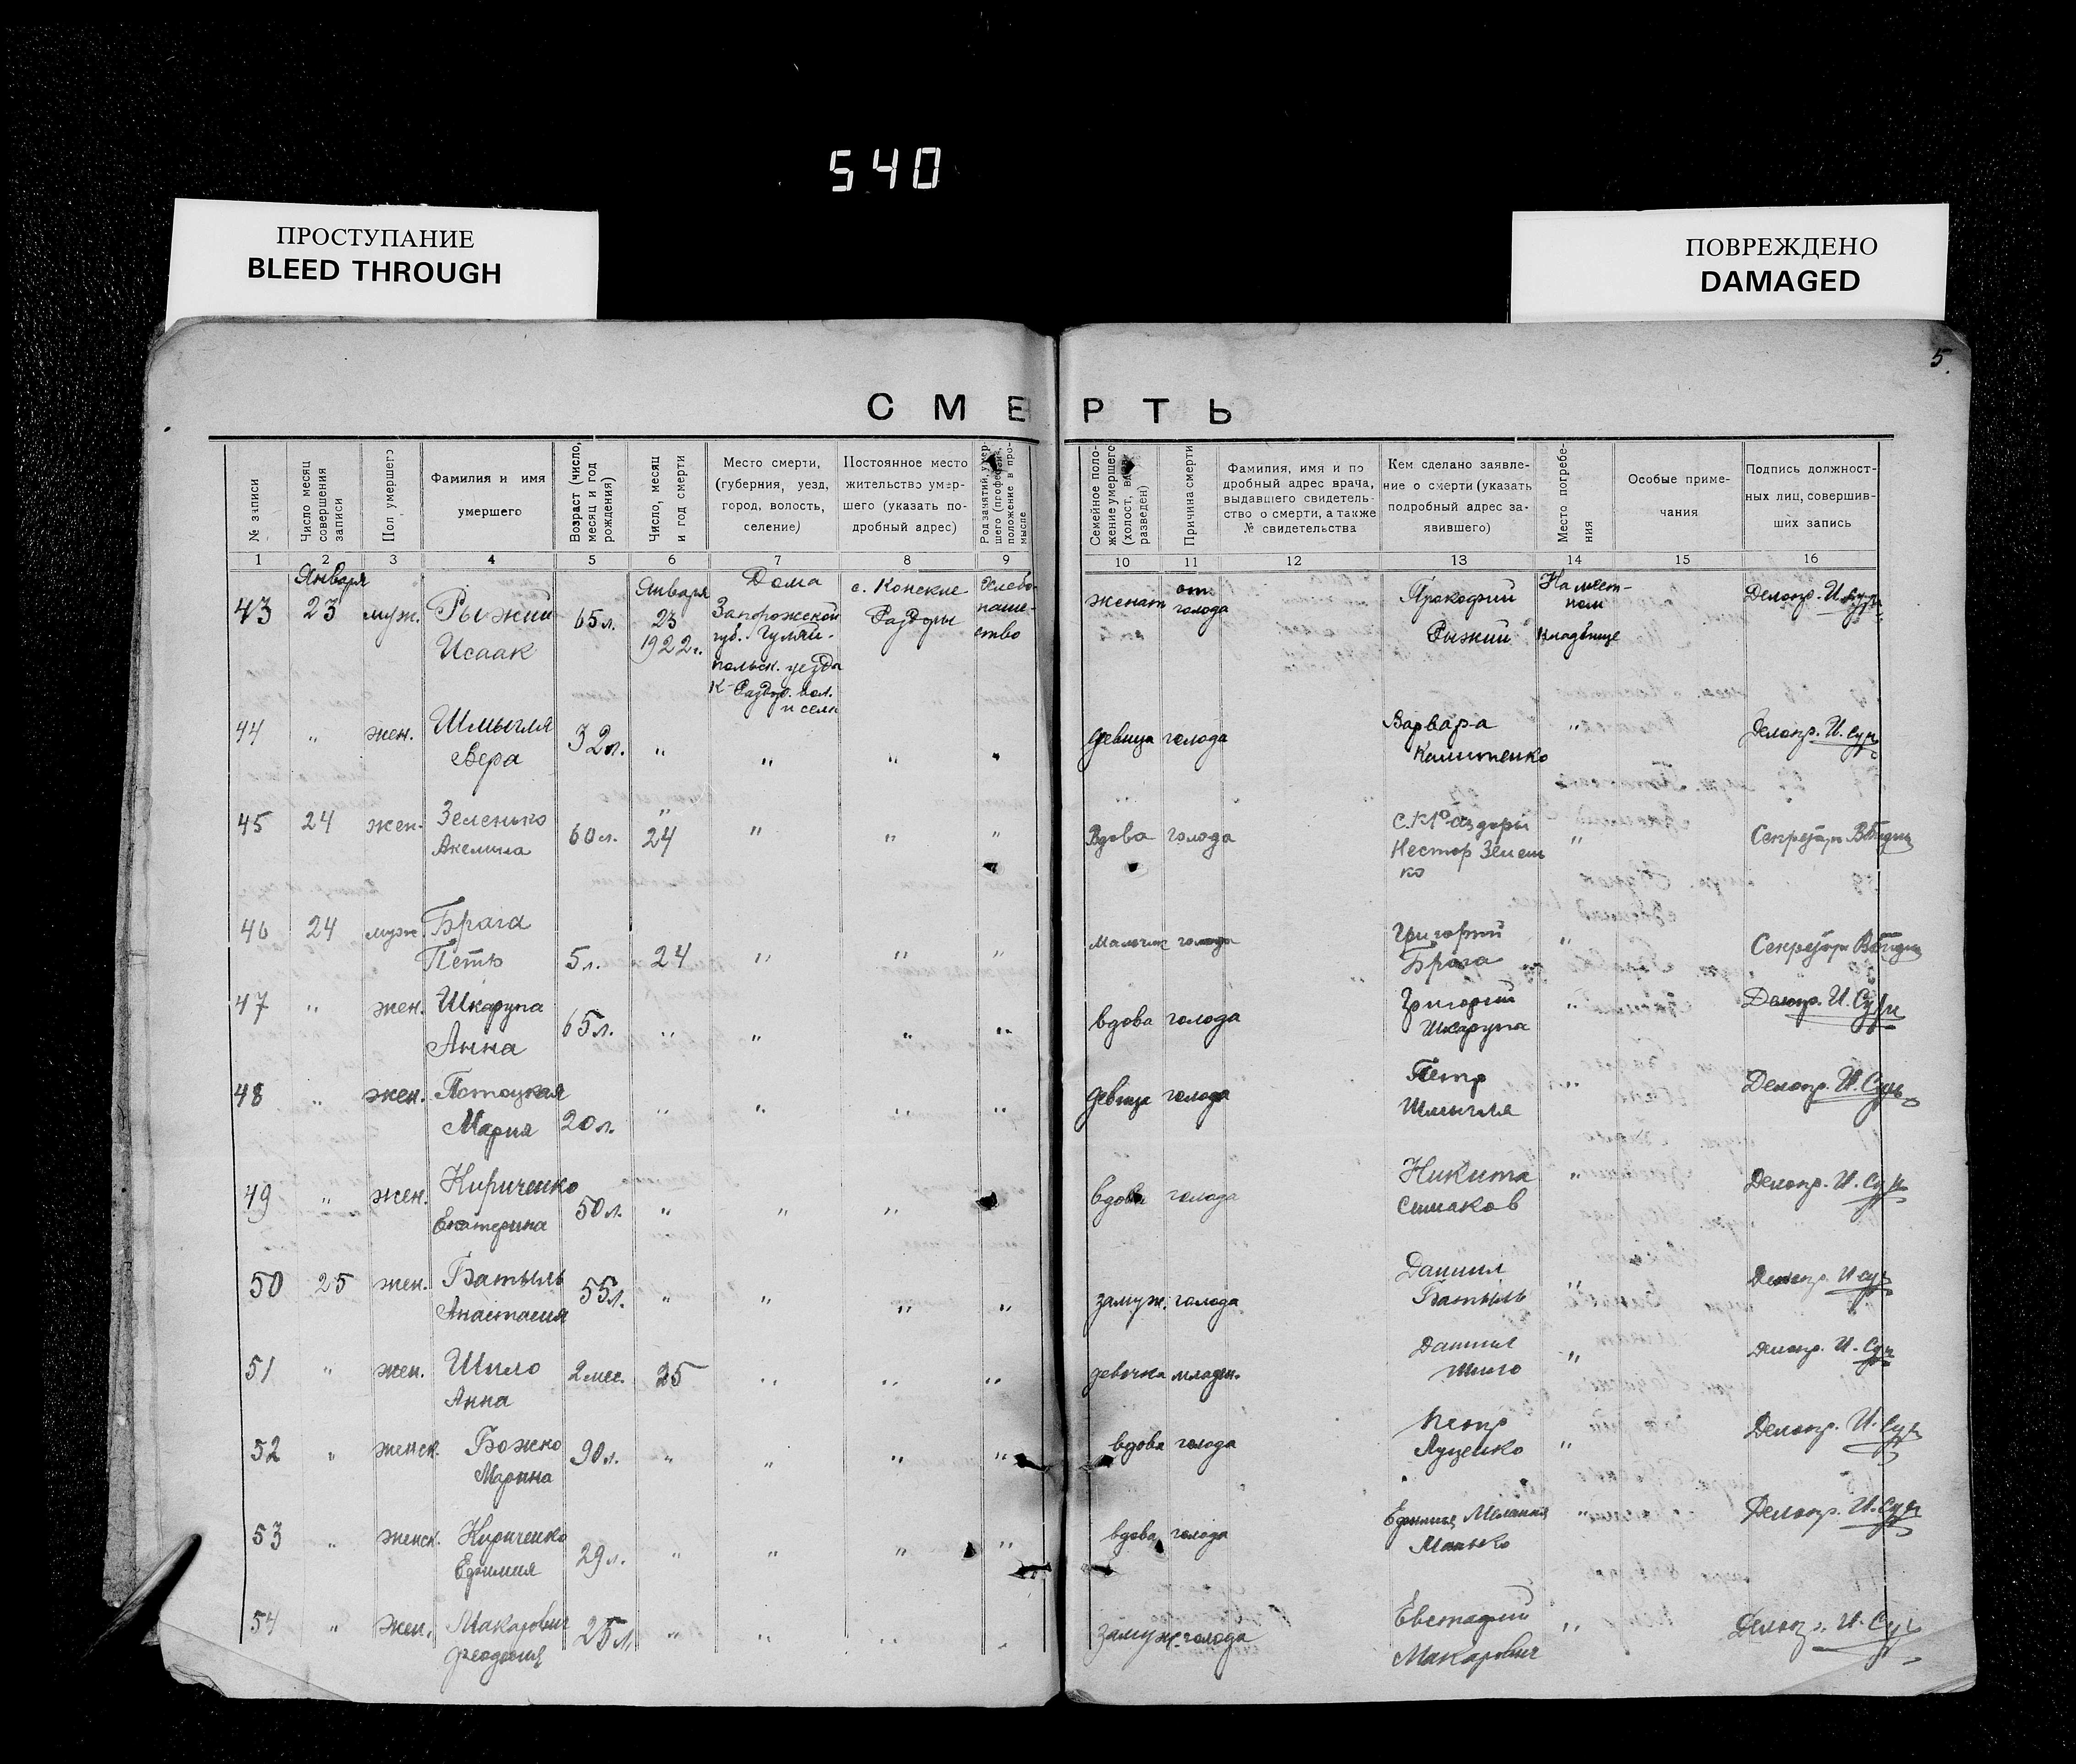 540
ПРОСТУПАНИЕ
BLEED THROUGH
ПОВРЕЖДЕНО
DAMAGED
5.
СМЕРТЬ
№ записи
Число месяц совершения записи
Пол умершего
Фамилия и имя
умершего
Возраст (число, месяц и год рождения)
Число, месяц и год смерти
Место смерти,
(губерния, уезд,
город, волость,
селение)
Постоянное место
жительство умер-
шего (указать по-
дробный адрес)
Род занятий, умер-
шего (профессия,
положение в про-
мысле
Семейное поло-
жение умершего
(холост,
разведен)
Причина смерти
Фамилия, имя и по
дробный адрес врача,
выдавшего свидетель-
ство о смерти, а также
№ свидетельства
Кем сделано заявле-
ние о смерти (указать
подробный адрес за-
явившего)
Место погребе-
ния
Особые приме-
чания
Подпись должност-
ных лиц, совершив-
ших запись
1 2 3 4 5 6 7 8 9 10 11 12 13 14 15 16
Января
43 23 муж. Рыжий
Исаак
65 л.
Января
23
1922 г.
Дома
Запорожской
губ. Гуляй-
польск. уезда
К-Раздор. вол.
и села
с. Конские
Раздоры
Хлебо-
паше-
ство
женат
от
голода
Прокофий
Рыжий
На мест-
ном
кладбище
Делопр. И. Сур
44 " жен. Шмыгля
Вера
32 л. " " " "
девица голода
Варвара
Калитенко
"
Делопр. И. Сур
45 24 жен. Зеленько
Акелина
60 л.
"
24 " " "
Вдова голода
С. К. Раздоры
Нестор Зелен
ко
"
Секретарь
46 24 муж Брага
Петь
5 л. 24 " " "
Мальчик голода
Григорий
Брага
"
Секретарь
47 " жен. Шкарупа
Анна
65 л. " " " "
вдова голода
Григорий
Шкарупа
"
Делопр. И. Сур
48 " жен.
Мария
20 л. " " " "
девица голода
Петр
Шмыгля
"
Делопр. И. Сур
49 " жен. Кириченко
Екатерина
50 л. " " "
вдова голода
Никита
Симаков
"
Делопр. И. Сур
50 25 жен. Батыль
Анастасия
55 л. " " " "
замуж. голода
Даниил
Батыль
"
Делопр. И. Сур
51 " жен. Шило
Анна
2 мес. 25 " " "
девочка младен.
Даниил
Шило
"
Делопр. И. Сур
52 " женск. Божко
Марина
90 л. " " " "
вдова голода
Петр
Луценко
"
Делопр. И. Сур
53 " женск. Кириченко
Ефимия
29 л. " " " "
вдова голода
Мелания
Манько
"
Делопр. И. Сур
54 " жен. Макарович
Феодосия
25 л. " " " "
замуж. голода
Евстафий
Макарович
"
Делопр. И. Сур